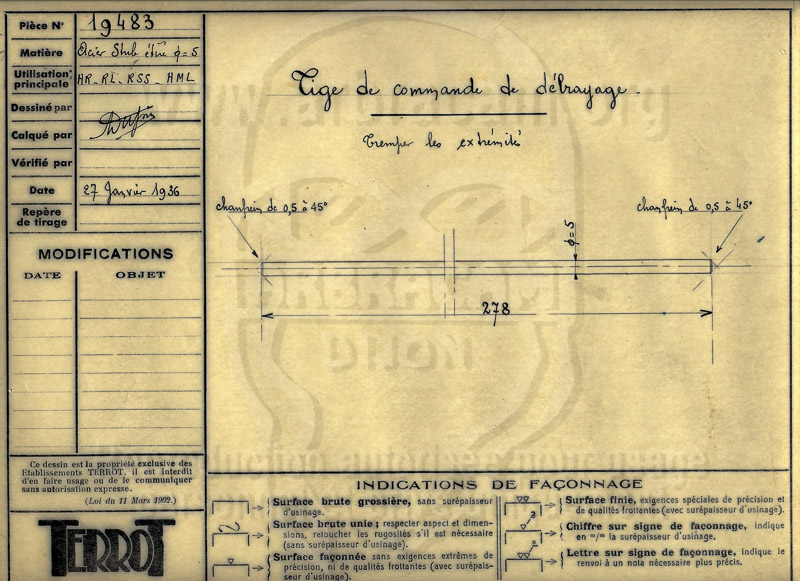 Pièce N° 19483
Matière Acier Stub étiré φ=5
Utilisation principale HR_RL_RSS_HML
Dessiné par
Calqué par
Vérifié par
Date 27 Janvier 1936
Repère de tirage
MODIFICATIONS
DATE OBJET
Ce dessin est la propriété exclusive des
Etablissements TERROT, il est interdit
d'en faire usage ou de le communiquer
sans autorisation expresse.
(Loi du 11 Mars 1902.)
TERROT
Tige de commande de débrayage.
Tremper les extrémités
chanfrein de 0,5 à 45°
chanfrein de 0,5 à 45°
φ=5
278
INDICATIONS DE FAÇONNAGE
Surface brute grossière, sans surépaisseur
d'usinage.
Surface brute unie ; respecter aspect et dimen-
sions, retoucher les rugosités s'il est nécessaire
(sans surépaisseur d'usinage).
Surface façonnée sans exigences extrêmes de
précision, ni de qualités frottantes (avec surépais-
seur d'usinage).
Surface finie, exigences spéciales de précision et
de qualités frottantes (avec surépaisseur d'usinage).
Chiffre sur signe de façonnage, indique
en m/m la surépaisseur d'usinage.
Lettre sur signe de façonnage, indique le
renvoi à un nota nécessaire plus précis.